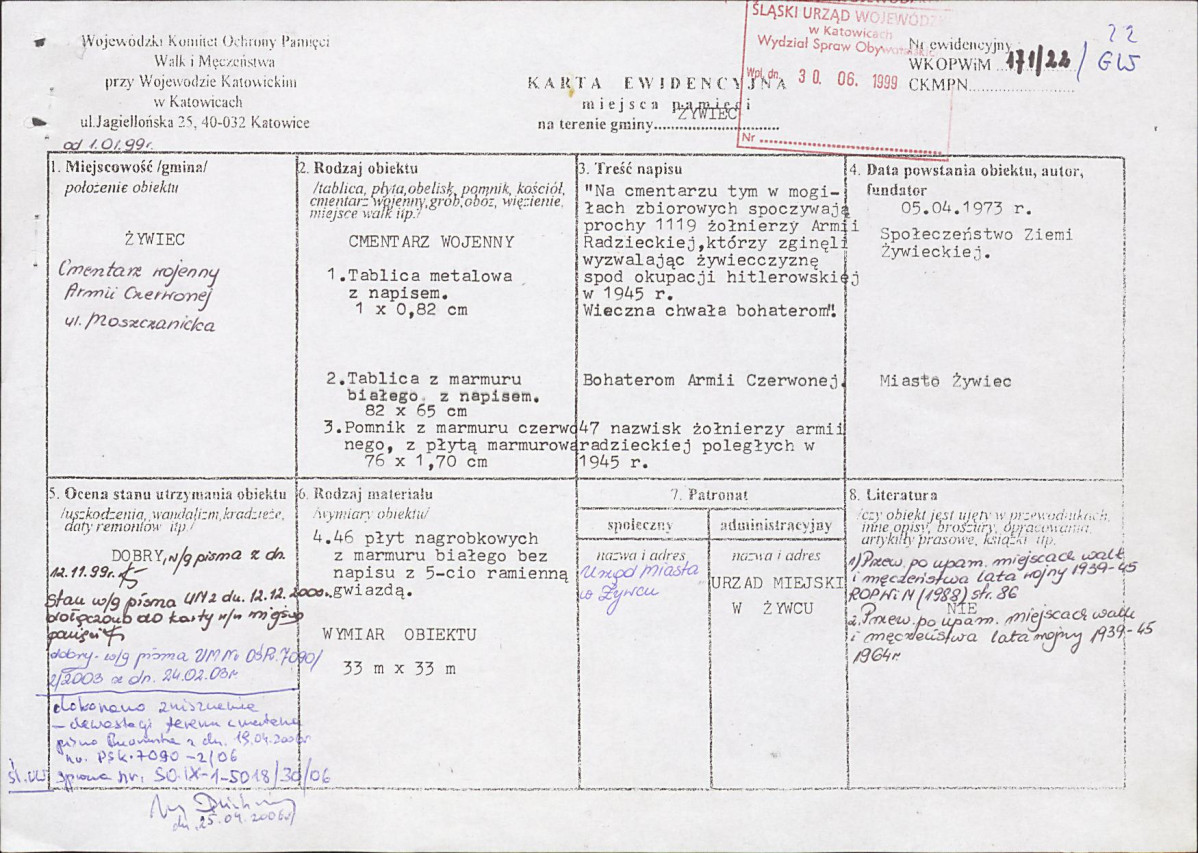 Wojewódzki Komitet Ochrony Pamięci
Walk i Męczeństwa
przy Wojewodzie Katowickim
w Katowicach
ul.Jagiellońska 25, 40-032 Katowice
od 1.01.99r.
KARTA EWIDENCYJNA
miejsca pamięci
na terenie gminy ŻYWIEC
ŚLĄSKI URZĄD WOJEWÓDZKI
w Katowicach
Wydział Spraw Obywatelskich
Wpł. dn. 30. 06. 1999
Nr
Nr ewidencyjny
WKOPWiM 171/22 / GW
CKMPN
22
1. Miejscowość /gmina/
położenie obiektu
ŻYWIEC
Cmentarz wojenny
Armii Czerwonej
ul. Moszczanicka
2. Rodzaj obiektu
/tablica, płyta,obelisk, pomnik, kościół,
cmentarz wojenny,grób,obóz, więzienie,
miejsce walk itp./
CMENTARZ WOJENNY
1.Tablica metalowa
z napisem.
1 x 0,82 cm
2.Tablica z marmuru
białego z napisem.
82 x 65 cm
3.Pomnik z marmuru czerwo
nego, z płytą marmurową
76 x 1,70 cm
3. Treść napisu
"Na cmentarzu tym w mogi-
łach zbiorowych spoczywają
prochy 1119 żołnierzy Armii
Radzieckiej,którzy zginęli
wyzwalając żywiecczyznę
spod okupacji hitlerowskiej
w 1945 r.
Wieczna chwała bohaterom".
Bohaterom Armii Czerwonej.
47 nazwisk żołnierzy armii
radzieckiej poległych w
1945 r.
4. Data powstania obiektu, autor,
fundator
05.04.1973 r.
Społeczeństwo Ziemi
Żywieckiej.
Miasto Żywiec
5. Ocena stanu utrzymania obiektu
/uszkodzenia,,wandalizm,kradzieże,
daty remontów itp./
DOBRY, w/g pisma z dn.
12.11.99r.
Stan w/g pisma UM z dn. 12.12.2000r.
dołączono do karty w/w miejsc
pamięci
dobry- w/g pisma UM Nr OŚR.7090/
2/2003 z dn. 24.02.03r
dokonano zniszczenia
– dewastacji terenu cmentarza
pismo Burmistrza z dn. 19.04.2006r
nr. PSK-7090-2/06
Śl.UW sprawa nr. SO.IX-1-5018/30/06
dn. 25.04.2006r
6. Rodzaj materiału
/wymiary obiektu/
4.46 płyt nagrobkowych
z marmuru białego bez
napisu z 5-cio ramienną
gwiazdą.
WYMIAR OBIEKTU
33 m x 33 m
7. Patronat
społeczny
nazwa i adres
Urząd Miasta
w Żywcu
administracyjny
nazwa i adres
URZAD MIEJSKI
W ŻYWCU
8. Literatura
/czy obiekt jest ujęty w przewodnikach,
inne opisy, broszury, opracowania,
artykuły prasowe, książki itp.
1) Przew. po upam. miejscach walk
i męczeństwa lata wojny 1939-45
ROPWiM (1988) str. 86
NIE
2. Przew. po upam. miejscach walk
i męczeństwa lata wojny 1939-45
1964r.